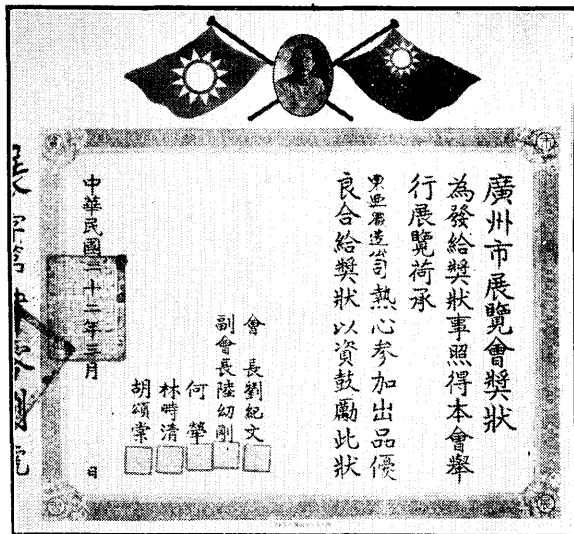 廣州市展覽會獎狀
為發給獎狀事照得本會舉
行展覽荷承
東亞釀造公司熱心參加出品優
良合給獎狀以資鼓勵此狀
會長劉紀文
副會長陸幼剛
何犖
林時清
胡頌棠
中華民國二十二年三月 日
展字第
號